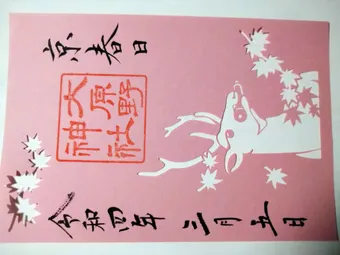 京春日
大原野
神社
令和四年 三月五日